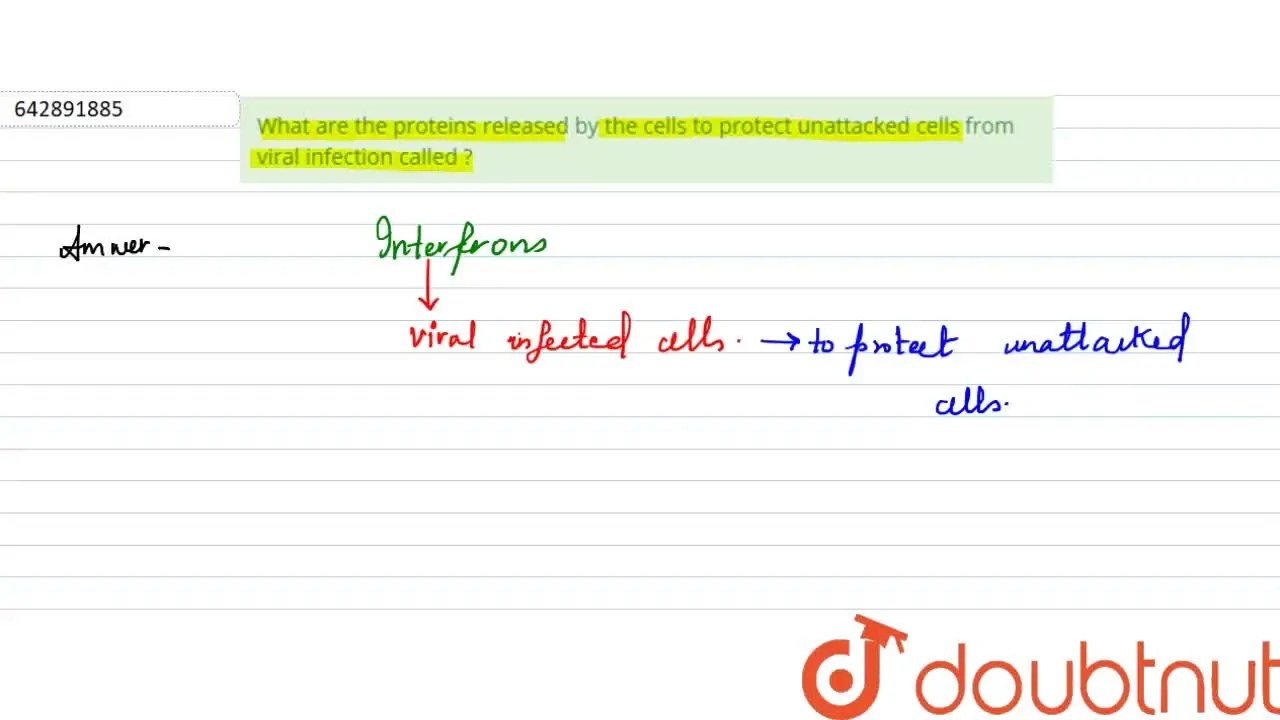 642891885
What are the proteins released by the cells to protect unattacked cells from
viral infection called ?
Answer - Interferons
viral infected cells. → to protect unattacked
cells.
doubtnut